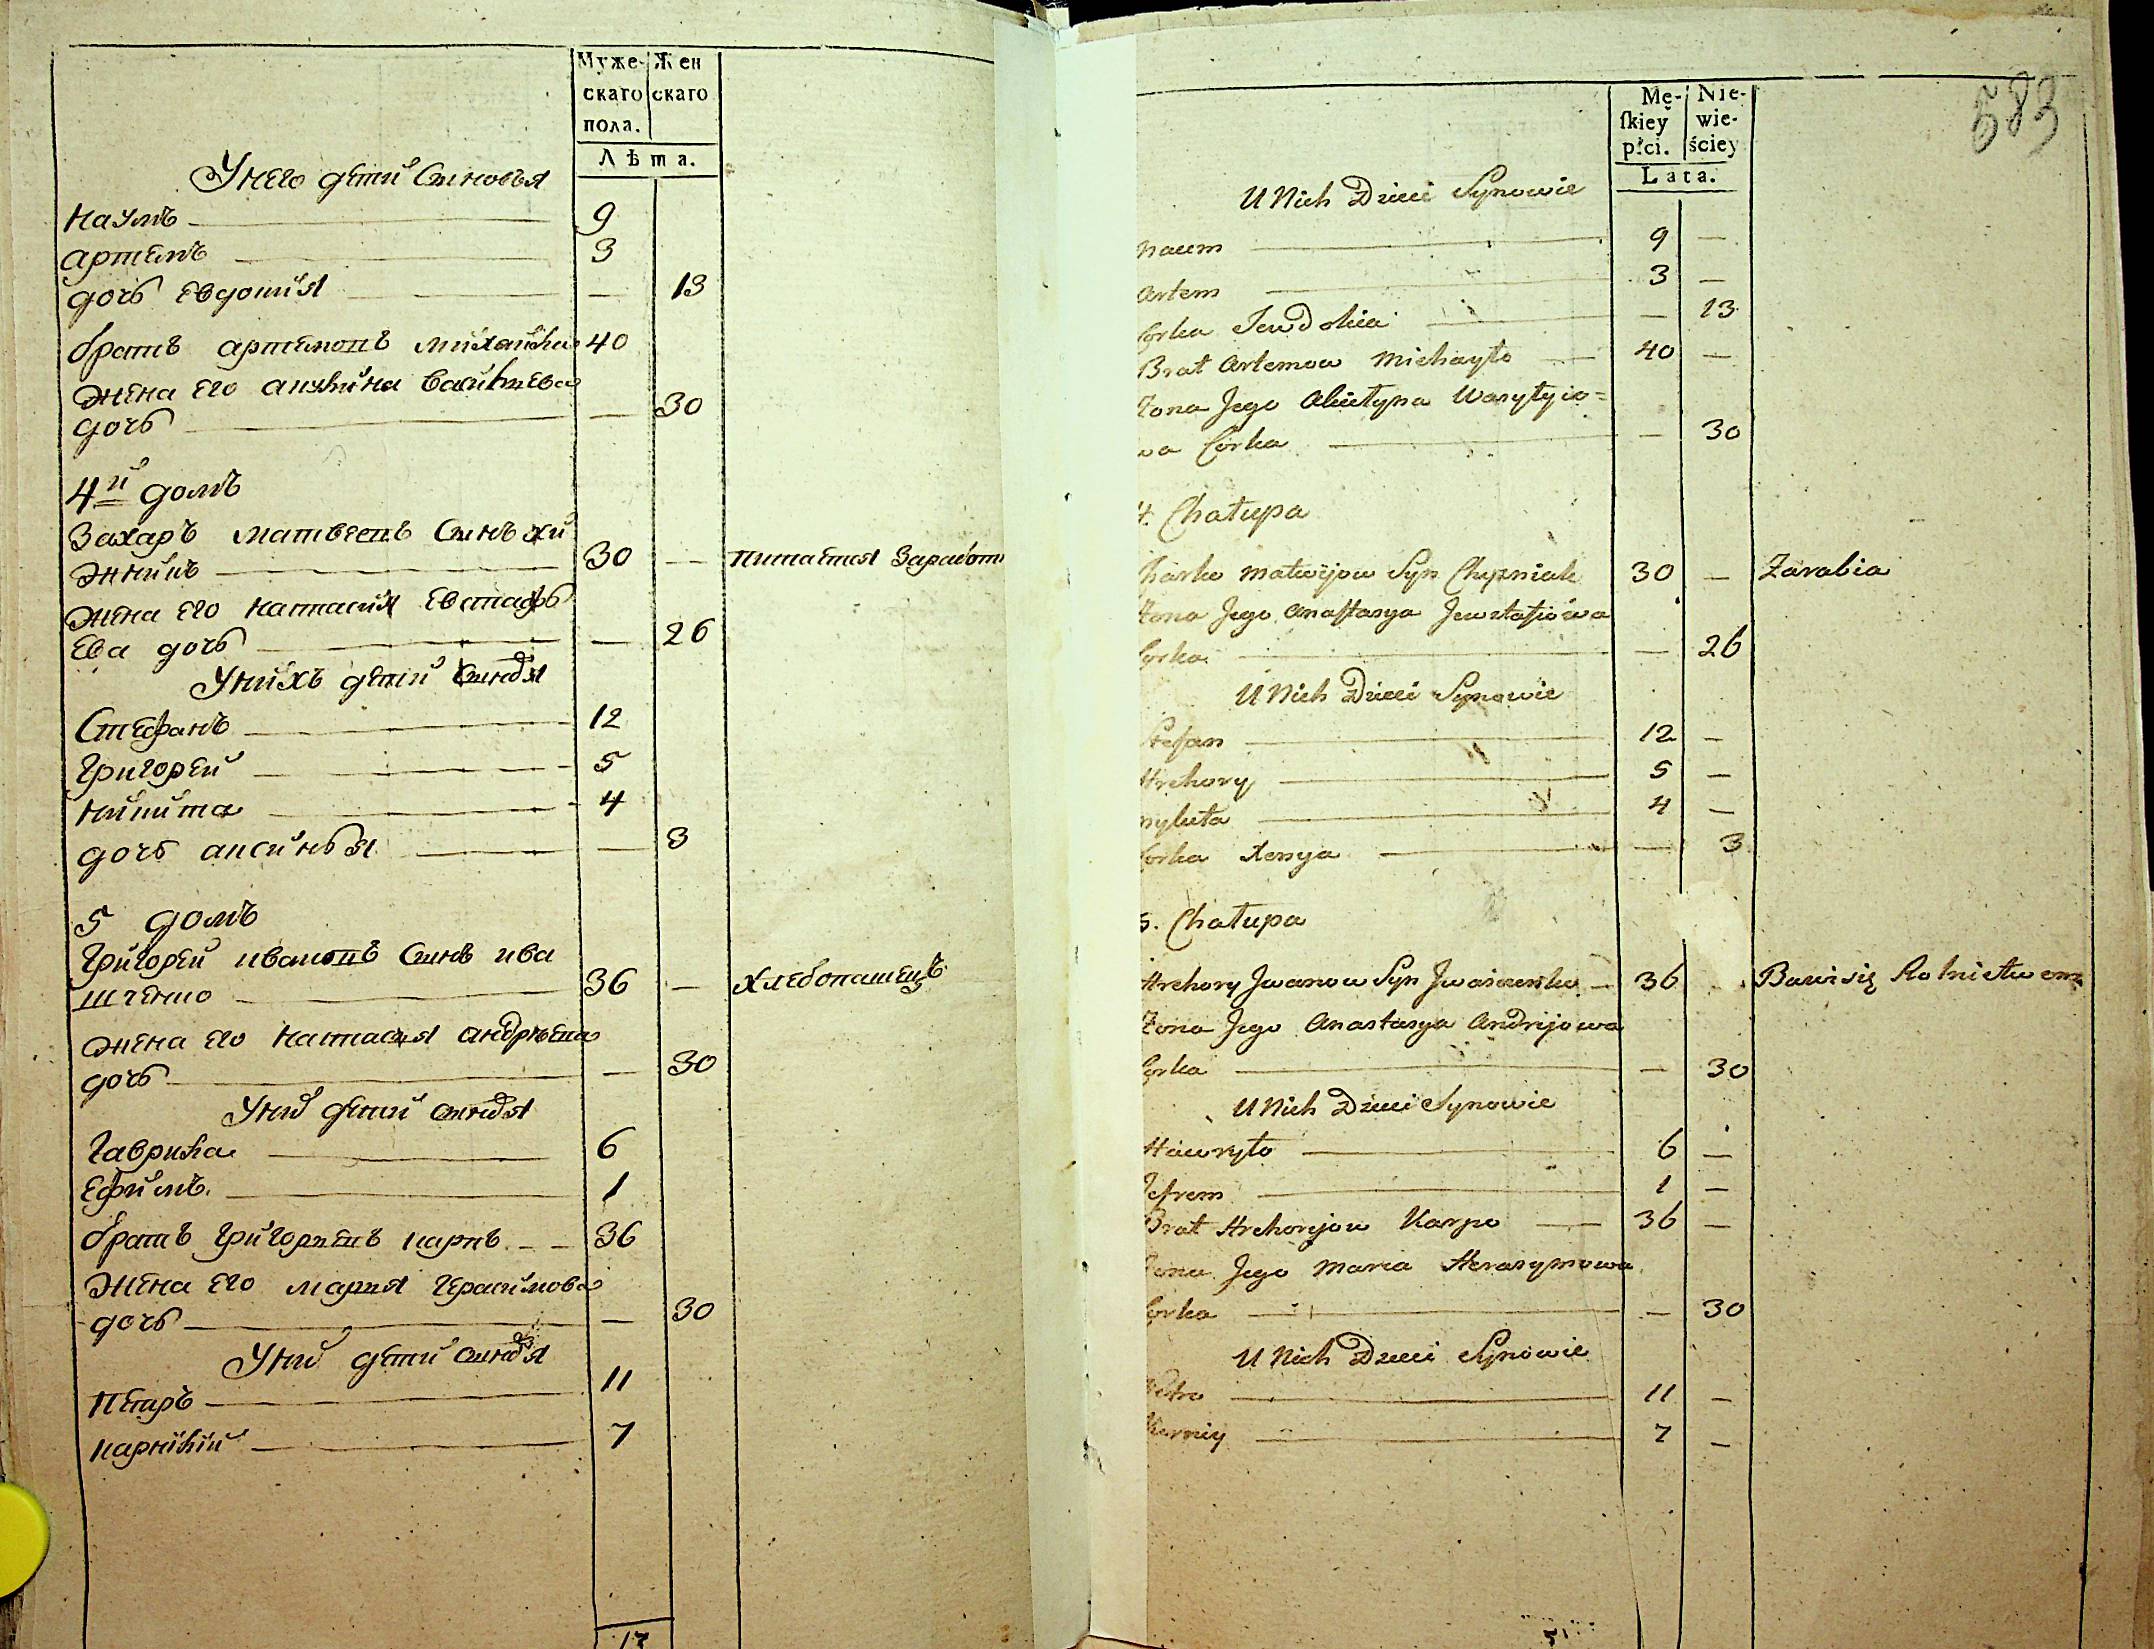 Муже-
скаго
пола.
Жен
скаго
Лѣта.
Унего детей Сыновья
Наумъ 9
артемъ 3
дочь евдокия — 13
братъ артемовъ михайла 40
жена его акулина васильева
дочь — 30
4й домъ
Захаръ матвеевъ Сынъ
30 — питается Заработк
жена его настасия евстафь
ева дочь — 26
Унихъ детей
Стефанъ 12
Григорей 5
никита 4
дочь аксинья — 3
5 домъ
Григорей ивановъ Сынъ ива
щенко 36 — хлебопашецъ
жена его настасия андреева
дочь — 30
Уних детей
Гаврила 6
ефимъ 1
братъ григорьевъ карпъ 36
жена его марья герасимова
дочь — 30
Уних детей
Петръ 11
карнилий 7
17
583
Mę-
ſkiey
płci.
Nie-
wie-
ściey
Lata.
U Nich Dzieci Synowie
naum 9 —
Artem 3 —
Corka Jewdokia — 13
Brat Artemow Michayło 40 —
Zona Jego Wasylyio=
wa Córka — 30
4. Chałupa
matwijow Syn 30 — Zarabia
Zona Jego Anastasya Jewstafiowa
Corka — 26
U Nich Dzieci Synowie
Stefan 12 —
Hrehory 5 —
nykita 4 —
Corka Xenya — 3
5. Chałupa
Hrehory Jwanow Syn Jwaszenko 36 Bawi się Rolnictwem
Zona Jego Anastasya Andrijowa
Corka — 30
U Nich Dzieci Synowie
Hawryło 6 —
Jefrem 1 —
Brat Hrehoryow Karpo 36 —
Zona Jego Maria Herasymowa
Corka — 30
U Nich Dzieci Synowie
Petro 11 —
Kurniy 7 —